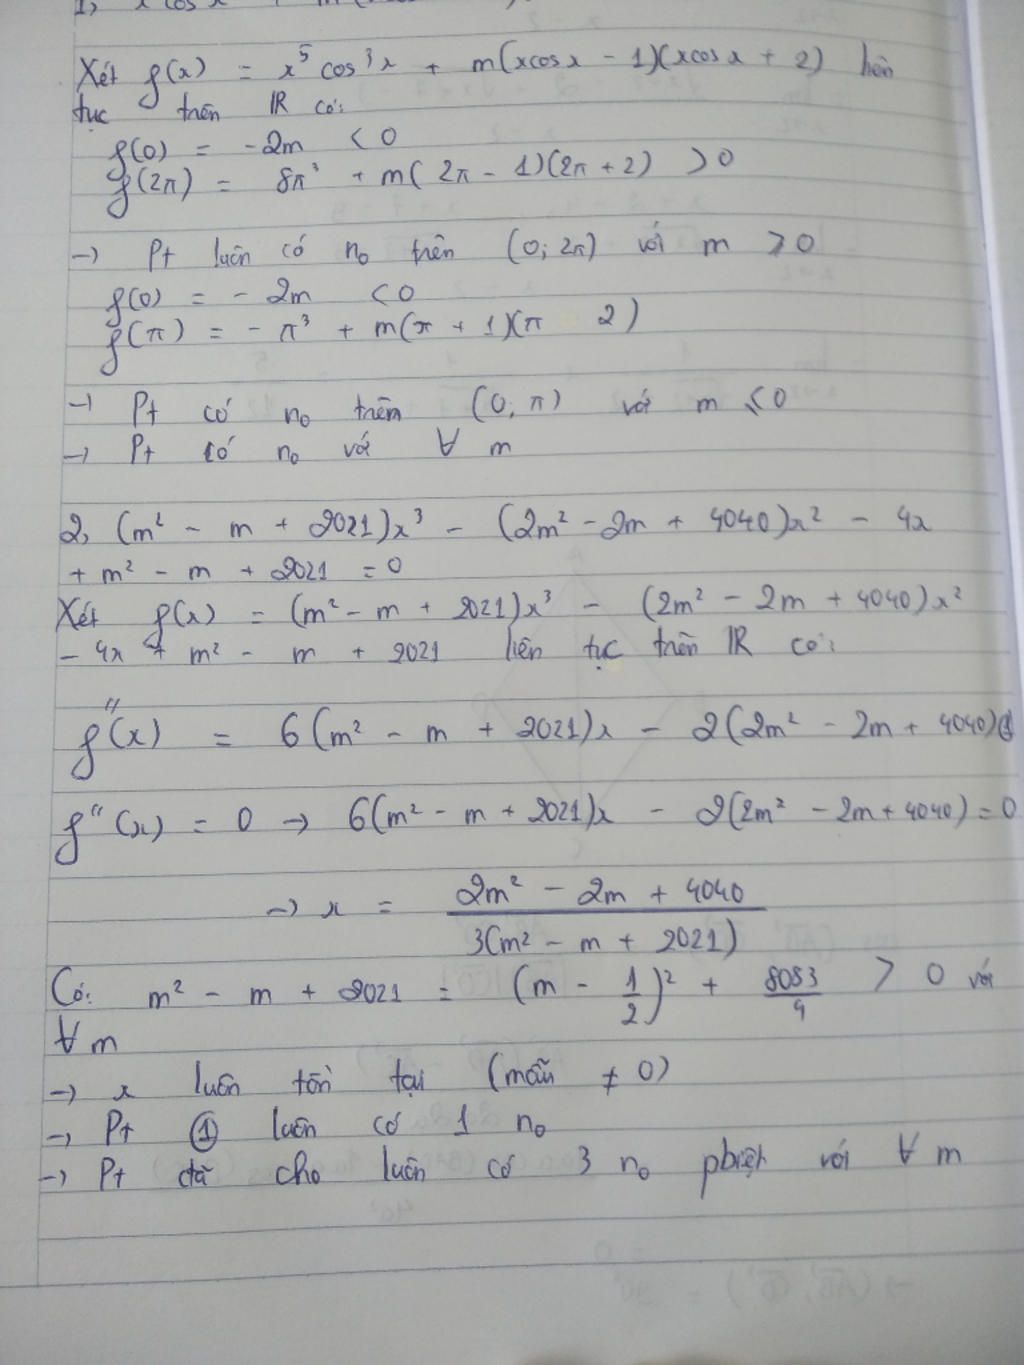 1, x cos x + m(
Xét f(x) = x⁵cos³x + m(xcosx - 1)(xcosx + 2) liên
tục trên IR có:
f(0) = -2m < 0
f(2π) = 8π³ + m(2π - 1)(2π + 2) > 0
→ Pt luôn có n₀ trên (0; 2π) với m ≥ 0
f(0) = -2m < 0
f(π) = -π³ + m(π + 1)(π 2)
→ Pt có n₀ trên (0; π) với m ≤ 0
→ Pt có n₀ với ∀ m
2, (m² - m + 2021)x³ - (2m² - 2m + 4040)x² - 4x
+ m² - m + 2021 = 0
Xét f(x) = (m² - m + 2021)x³ - (2m² - 2m + 4040)x²
- 4x + m² - m + 2021 liên tục trên IR có:
f"(x) = 6(m² - m + 2021)x - 2(2m² - 2m + 4040) ①
f"(x) = 0 → 6(m² - m + 2021)x - 2(2m² - 2m + 4040) = 0
→ x = (2m² - 2m + 4040) / 3(m² - m + 2021)
Có: m² - m + 2021 = (m - 1/2)² + 8083/4 > 0 với
∀ m
→ x luôn tồn tại (mẫu ≠ 0)
→ Pt ① luôn có 1 n₀
→ Pt đã cho luôn có 3 n₀ pbiệt với ∀ m